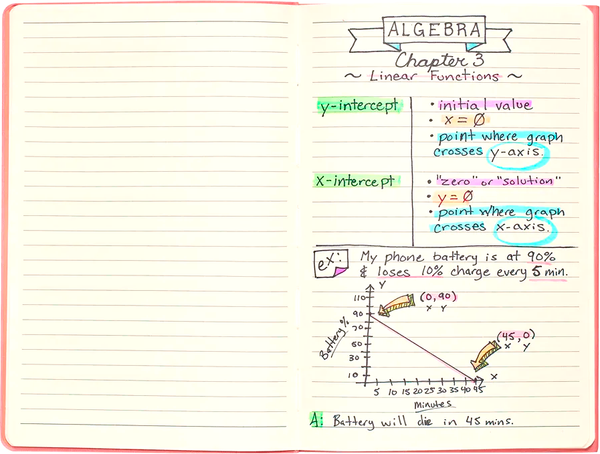 ALGEBRA
Chapter 3
~ Linear Functions ~
y-intercept
• initial value
• x = Ø
• point where graph
crosses y-axis.
x-intercept
• "zero" or "solution"
• y = Ø
• point where graph
crosses x-axis.
ex:
My phone battery is at 90%
& loses 10% charge every 5 min.
Y
110
90
70
50
30
10
Battery %
(0,90)
X Y
(45,0)
X Y
X
5 10 15 20 25 30 35 40 45
Minutes
A: Battery will die in 45 mins.